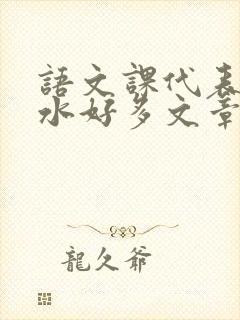 語文課代表
水好多文章
龍久爺